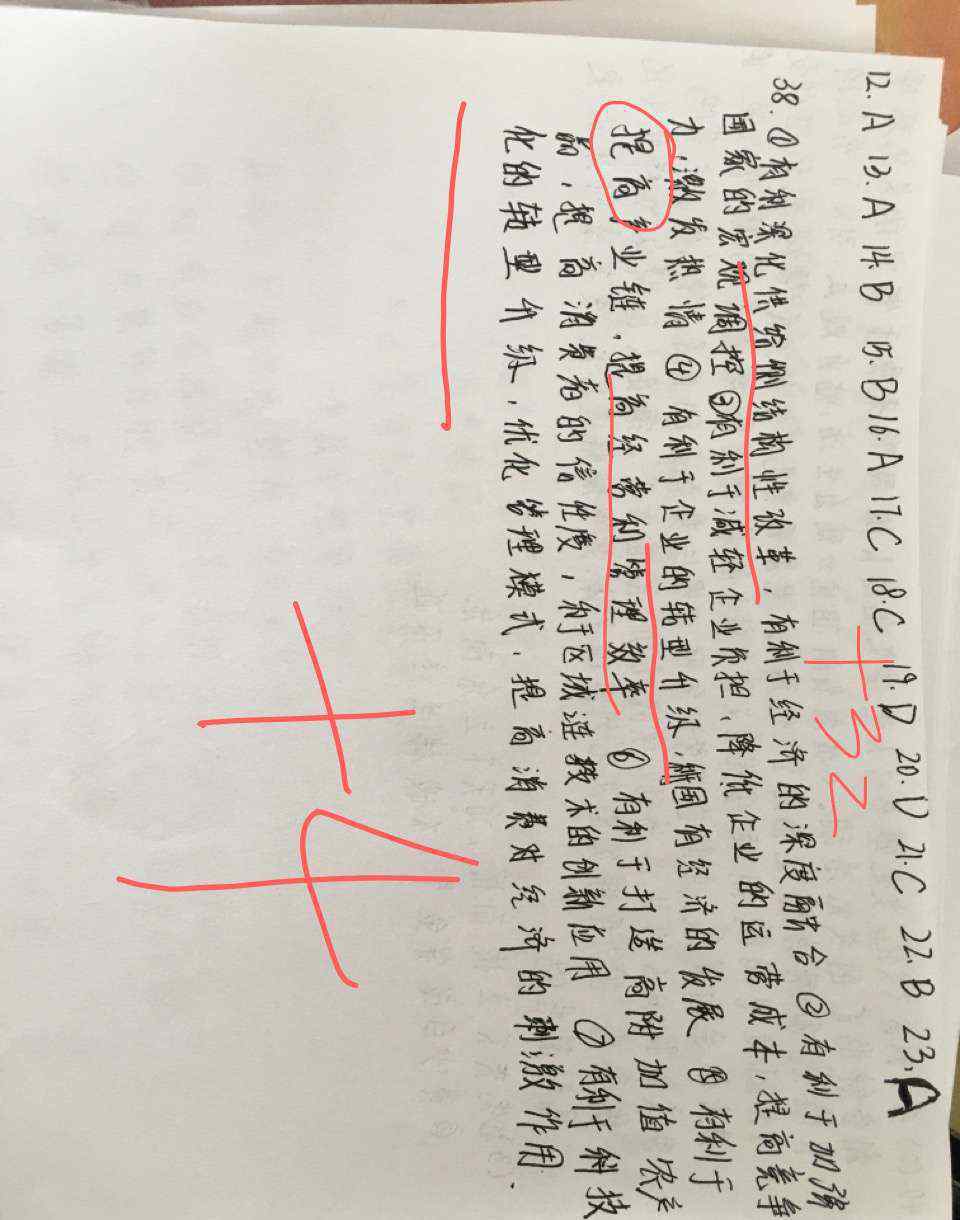 12.A 13.A 14.B 15.B 16.A 17.C 18.C 19.D 20.D 21.C 22.B 23.A
+32
38.①有利深化供给侧结构性改革，有利于经济的深度融合②有利于加强
国家的宏观调控③有利于减轻企业负担、降低企业的运营成本，提高竞争
力，激发热情④有利于企业的转型升级，国有经济的发展⑤有利于
提高产业链，提高经营和管理效率⑥有利于打造高附加值农产
品，提高消费者的信任度，利于区域链技术的创新应用⑦有利于科技
化的转型升级，优化管理模式，提高消费对经济的刺激作用.
+4